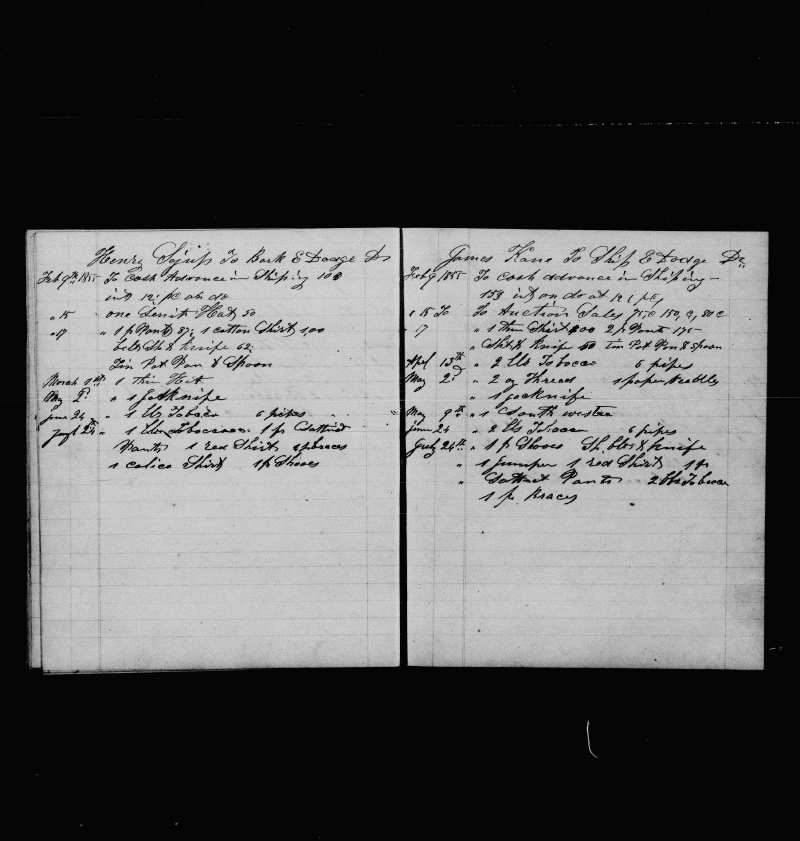 Henry To Bark E Dodge Dr
Feb 9th 1855 To Cash Advance in Shiping 108
int 12 pc on do
" 15 one Hat 50
" 17 " 1 p Pants 87, 1 cotton Shirt 1,00
belt Sh & Knife 62
Tin Pot Pan & Spoon
March 1st 1 thin Hat
May 2d " 1 jacknife
june 24 " 1 lb Tobaco 6 pipes
24th " 1 1 p
Pants 1 red Shirt braces
1 calico Shirt 1 p Shoes
James Kane To Ship E Dodge Dr
Feb 9 1855 To Cash advance in Shiping
153 int on do at 12 pc
" 15 To To Auction Sales 75c 150, 9, 80c
" 17 " 1 thin Shirt 2 p Pants 175
" Sht & Knife Tin Pot Pan & Spoon
Apel 13th " 2 lbs Tobacco 6 pipes
May 2d " 2 Threads 1 paper
" 1 jacknife
May 9th " 1 South wester
june 24 " 2 lbs Tobacco 6 pipes
July 24th " 1 p Shooes Sh, & Knife
" 1 jumper 1 red Shirt 1 p
" Pants 2 lbs Tobacco
1 p Braces